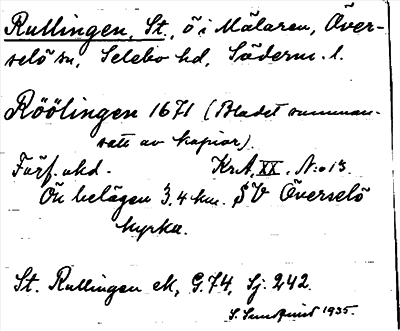 Rullingen, St., ö i Mälaren, Över-
selö sn, Selebo hd, Söderm. l.
Röölingen 1671 (Bladet samman-
satt av kopior).
Förf. okd. KrA, XX, N:o 13
Ön belägen 3,4 km. SV Överselö
kyrka.
St. Rullingen ek, G.74, Sj. 242.
S. Sundquist 1935.